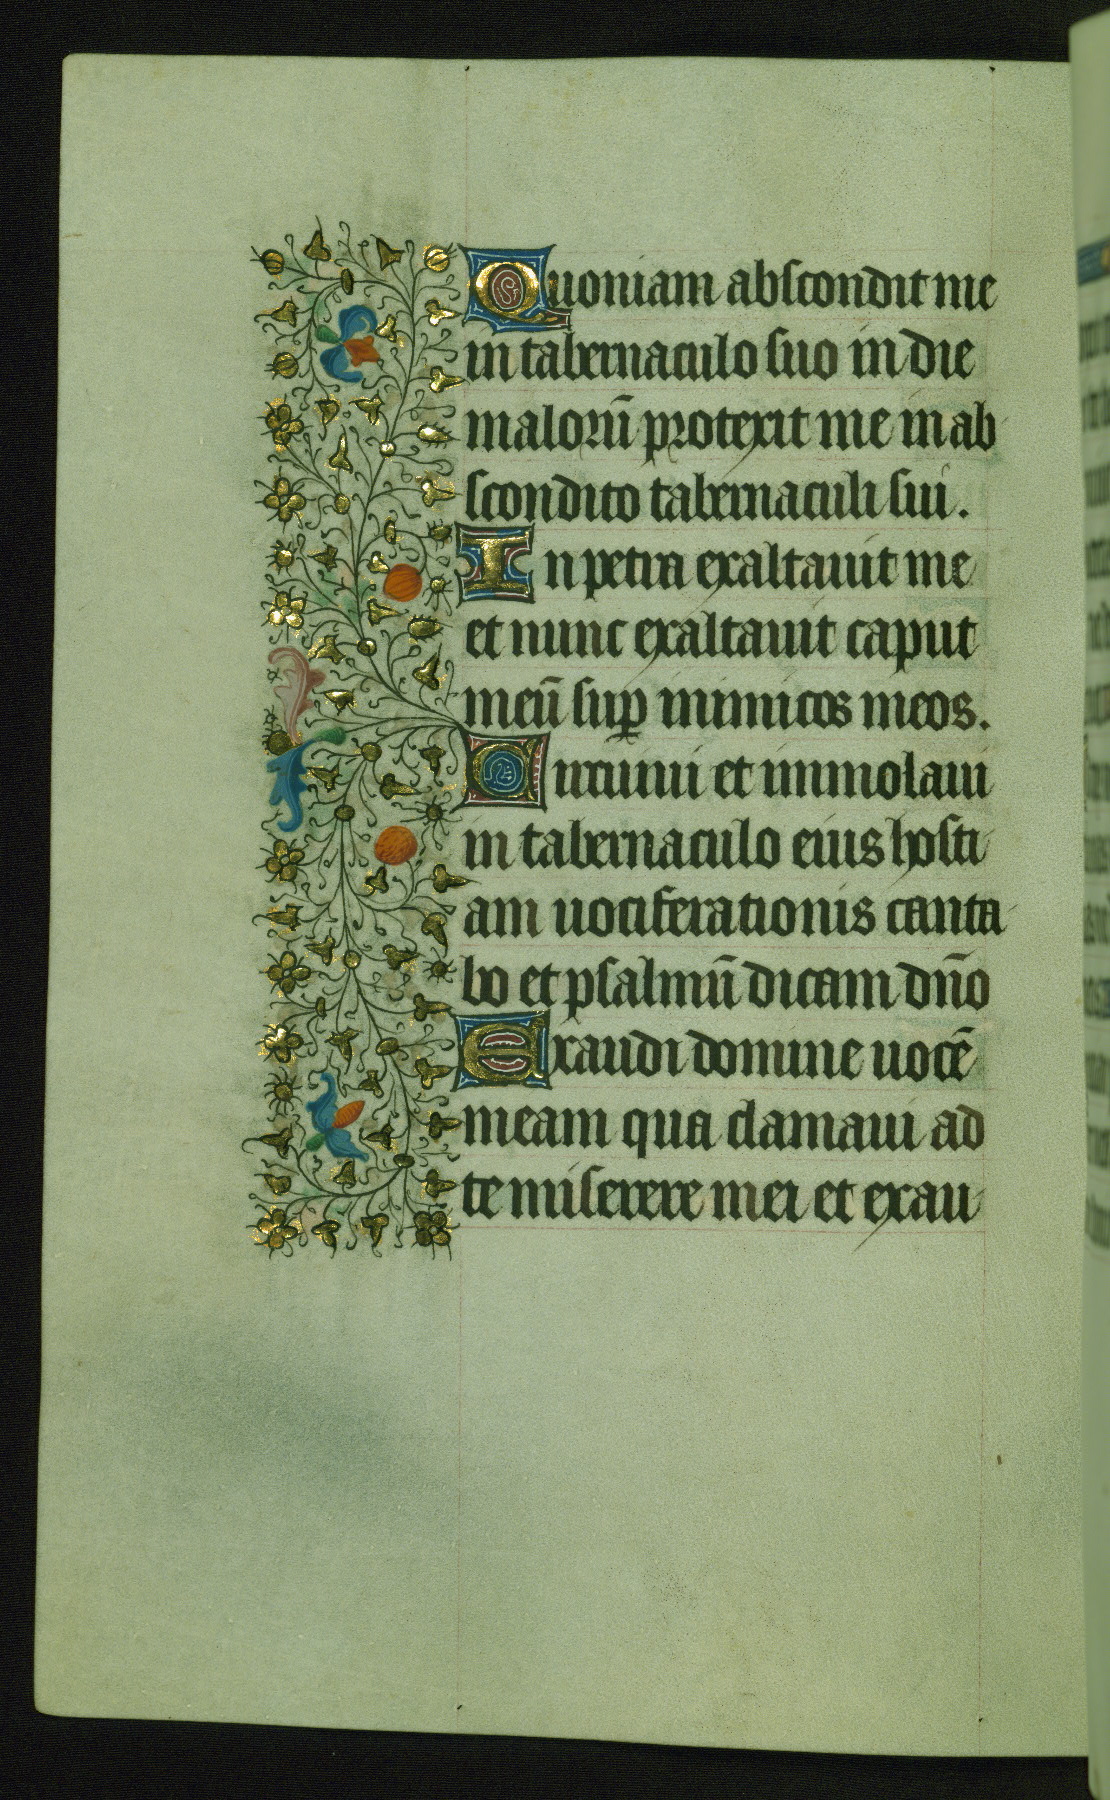 Quoniam abscondit me
in tabernaculo suo in die
malorū protexit me in ab
scondito tabernaculi sui.
In petra exaltauit me
et nunc exaltauit caput
meū suꝑ inimicos meos.
Circuiui et immolaui
in tabernaculo eius hosti
am uociferationis canta
bo et psalmū dicam dn̄o
Exaudi domine uocē
meam qua clamaui ad
te miserere mei et exau